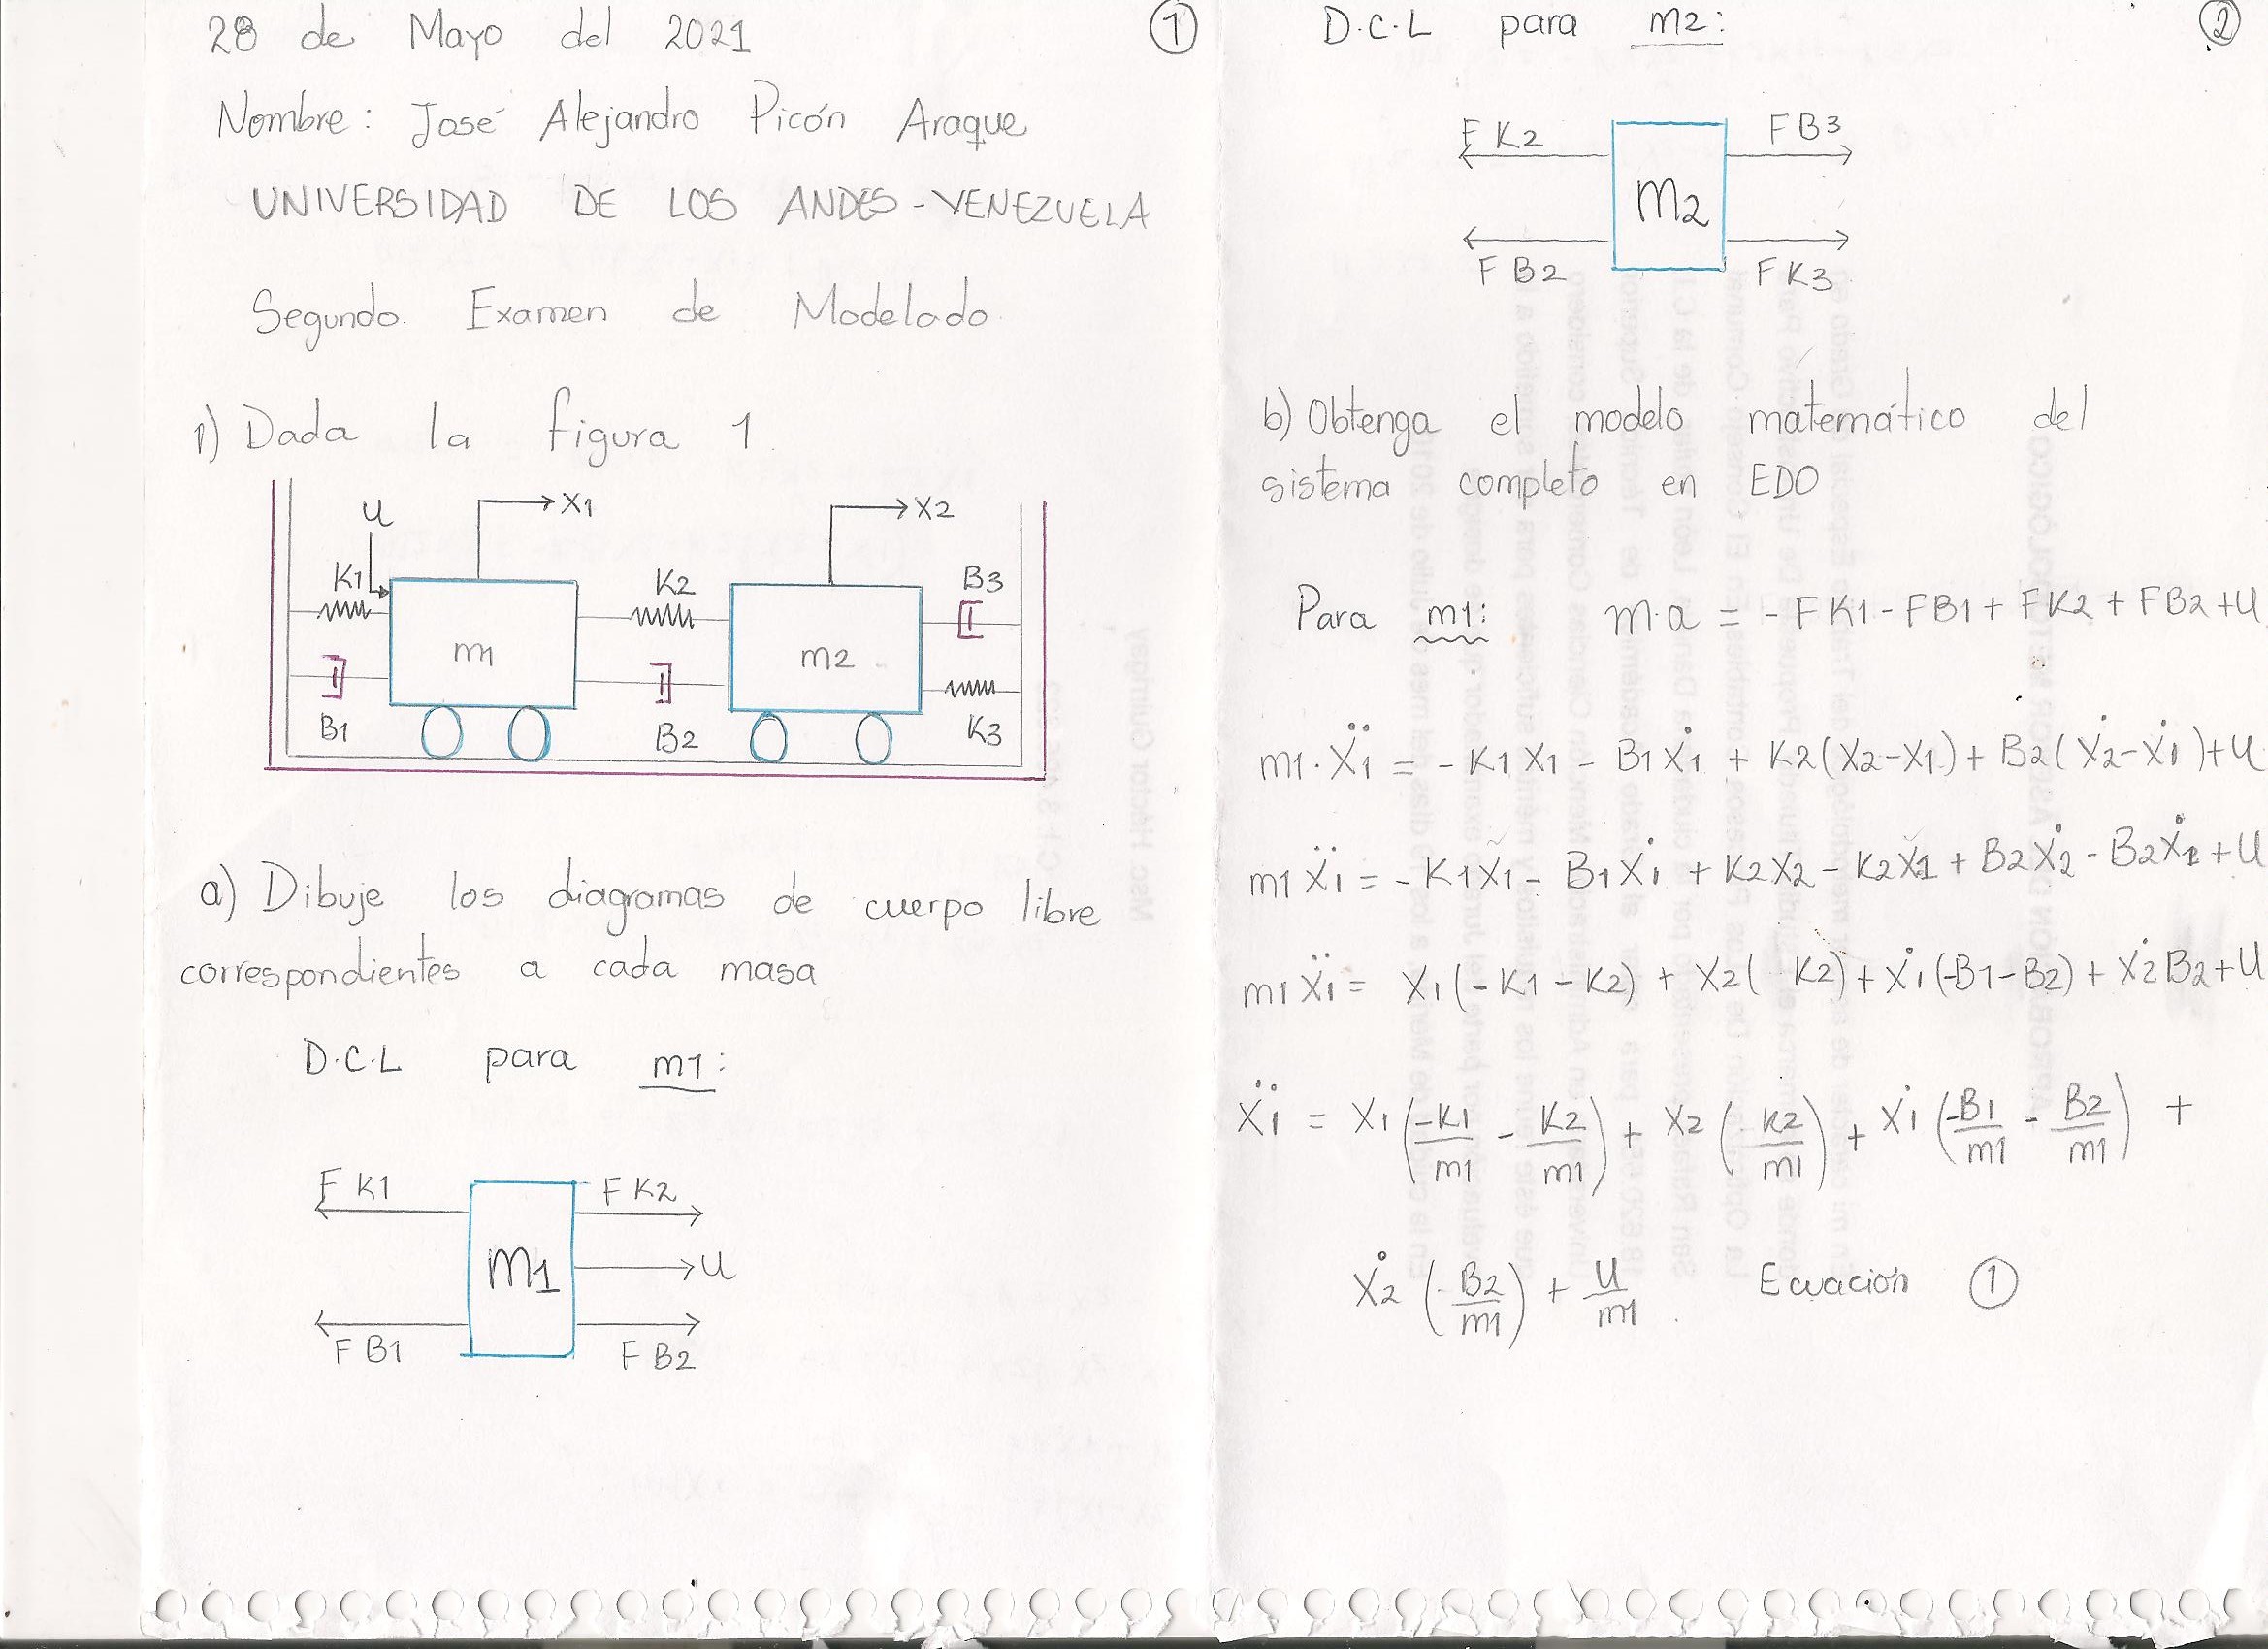 28 de Mayo del 2021 ①
Nombre: José Alejandro Picón Araque
UNIVERSIDAD DE LOS ANDES-VENEZUELA
Segundo Examen de Modelado
1) Dada la figura 1
U X1 X2
K1 K2 B3
m1 m2
B1 B2 K3
a) Dibuje los diagramas de cuerpo libre
correspondientes a cada masa
D.C.L para m1:
FK1 FK2
m1 U
FB1 FB2
D.C.L para m2: ②
FK2 FB3
m2
FB2 FK3
b) Obtenga el modelo matemático del
sistema completo en EDO
Para m1: m.a = -FK1-FB1+FK2+FB2+U
m1.Ẍ1 = -K1X1 - B1Ẋ1 + K2(X2-X1) + B2(Ẋ2-Ẋ1)+U
m1Ẍ1 = -K1X1 - B1Ẋ1 + K2X2 - K2X1 + B2Ẋ2 - B2Ẋ1 + U
m1Ẍ1 = X1(-K1-K2) + X2( K2) + Ẋ1(-B1-B2) + Ẋ2B2+U
Ẍ1 = X1(-K1/m1 - K2/m1) + X2(K2/m1) + Ẋ1(-B1/m1 - B2/m1) +
Ẋ2(B2/m1) + U/m1. Ecuación ①